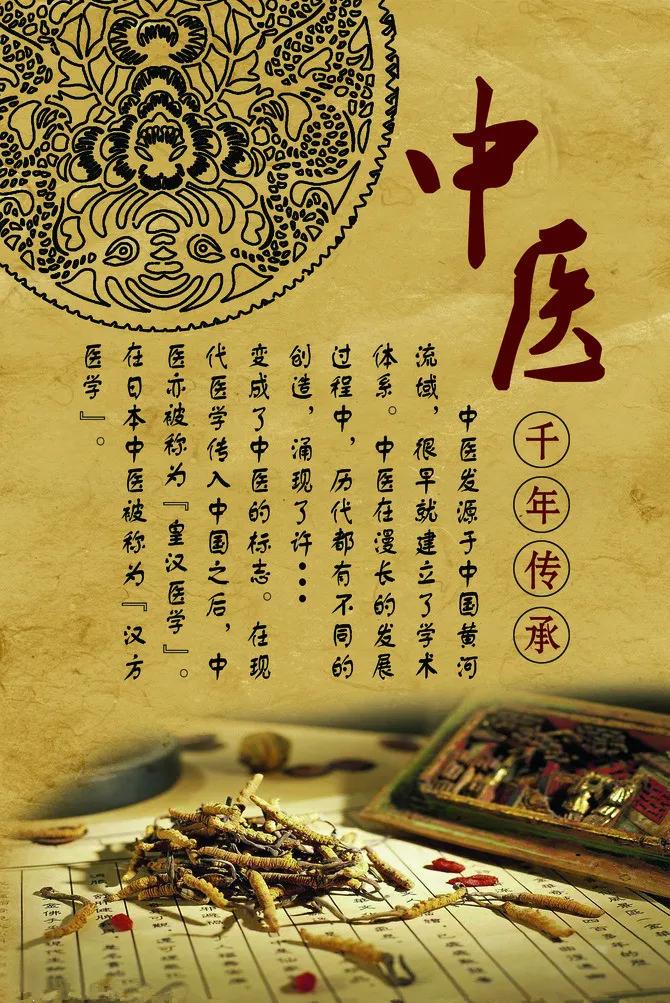 中医
千年传承
中医发源于中国黄河
流域，很早就建立了学术
体系。中医在漫长的发展
过程中，历代都有不同的
创造，涌现了许•••
变成了中医的标志。在现
代医学传入中国之后，中
医亦被称为『皇汉医学』。
在日本中医被称为『汉方
医学』。